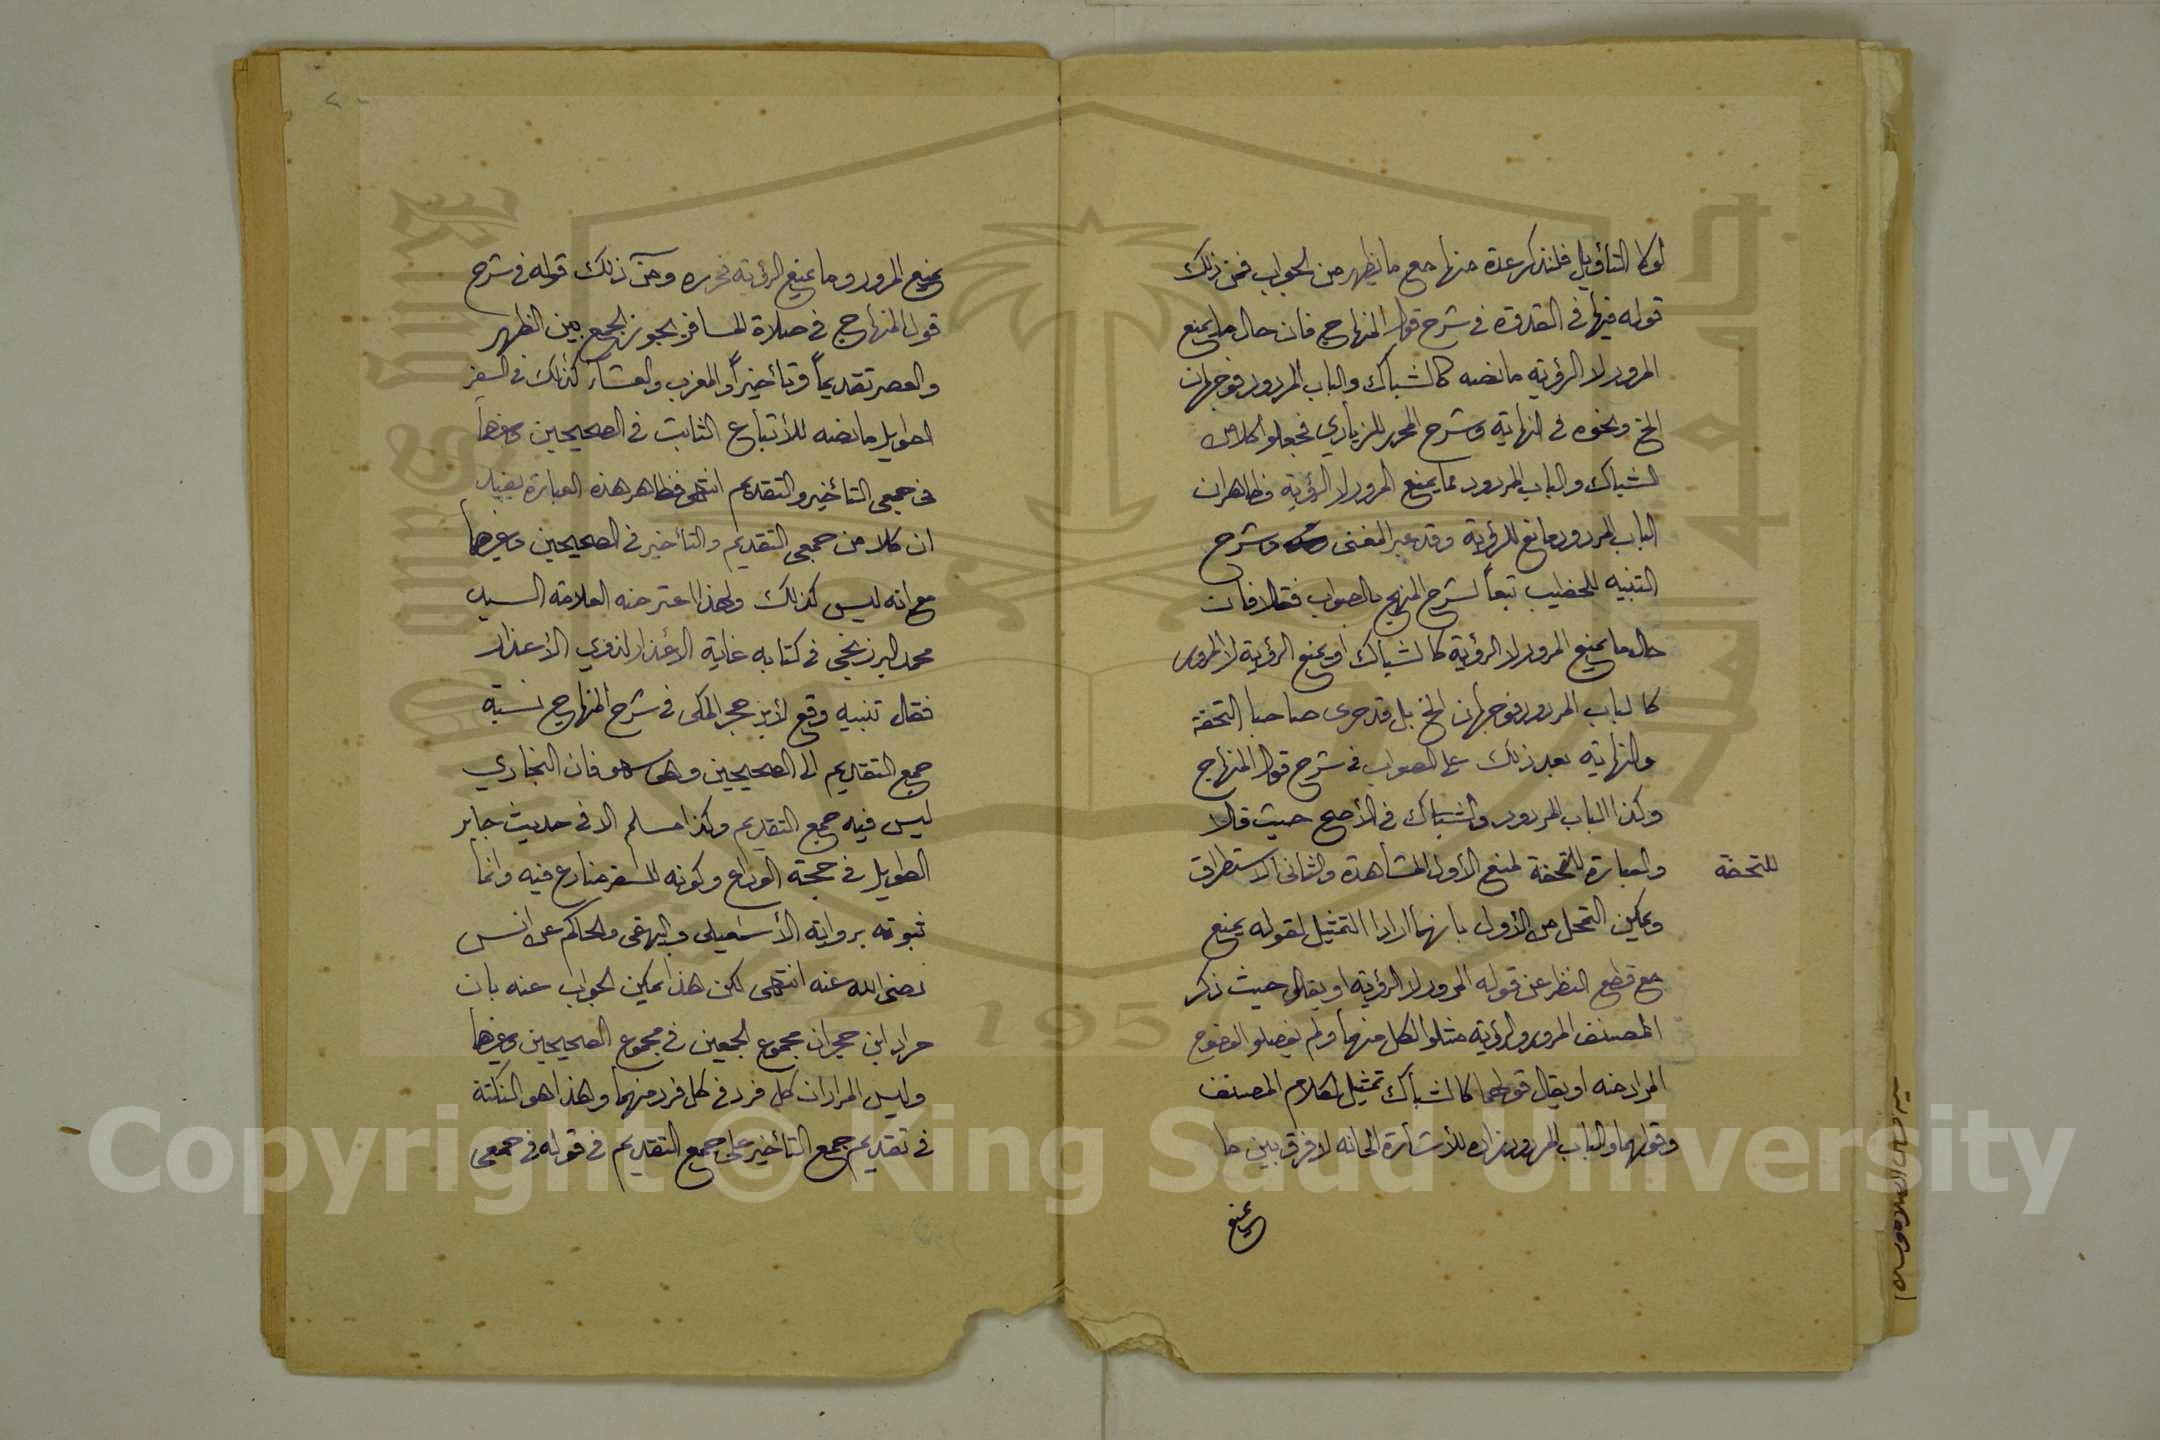 لوكا التأويل فلنذكر عدة منها مع ما يظهر من الجواب فمن ذلك
قوله فيها في القدوة في شرح قول المنهاج فان حال ما يمنع
المرور لا الرؤية ما نصه كالشباك والباب المردود فوجهان
الخ ونحوه في النهاية وشرح المحرر للزيادي فجعلوا كلا من
الشباك والباب المردود مما يمنع المرور لا الرؤية وظاهر ان
الباب المردود مانع للرؤية وقد عبر المغنى وشرح
التنبيه للخطيب تبعاً لشرح المنهج بالصواب فقالا فان
حال ما يمنع المرور لا الرؤية كالشباك او يمنع الرؤية لا المرور
كالباب المردود فوجهان الخ بل قد جرى صاحبا التحفة
والنهاية بعد ذلك على الصواب في شرح قول المنهاج
وكذا الباب المردود والشباك في الأصح حيث قالا
والعبارة للتحفة لمنع الأول المشاهدة والثاني الاستطراق
للتحفة
ويمكن التحمل من الأول بأنهما ارادا التمثيل لقوله يمنع
مع قطع النظر عن قوله المرور لا الرؤية او يقال حيث ذكر
المصنف المرور والرؤية مثلوا لكل منهما ولم يفصلوا لوضوح
المراد منه او يقال قولهما كالشباك تمثيل لكلام المصنف
وقولهما والباب المردود زاده للأشارة الى انه لا فرق بين ما
يمنع
يمنع المرور وما يمنع الرؤية فحرره ومن ذلك قوله في شرح
قول المنهاج في صلاة المسافر يجوز الجمع بين الظهر
والعصر تقديماً وتأخيراً والمغرب والعشاء كذلك في السفر
الطويل ما نصه للأتباع الثابت في الصحيحين وغيرهما
في جمعى التأخير والتقديم انتهى فظاهر هذه العبارة يفيد
ان كلا من جمعى التقديم والتأخير في الصحيحين وغيرهما
مع انه ليس كذلك ولهذا اعترضه العلامة السيد
محمد البرزنجى في كتابه غاية الأعذار لذوي الأعذار
فقال تنبيه وقع لأبن حجر المكى في شرح المنهاج نسبة
جمع التقديم الى الصحيحين وهو سهو فان البخاري
ليس فيه جمع التقديم وكذا مسلم الا في حديث جابر
الطويل في حجة الوداع وكونه للسفر منازع فيه وانما
ثبوته برواية الأسمعيلى والبيهقى والحاكم عن انس
رضى الله عنه انتهى لكن هذا يمكن الجواب عنه بان
مراد ابن حجر ان مجموع الجمعين في مجموع الصحيحين وغيرهما
وليس المراد ان كل فرد في كل فرد منهما ولهذا هو النكتة
في تقديم جمع التأخير على جمع التقديم في قوله في جمعى
Copyright © King Saud University
1957